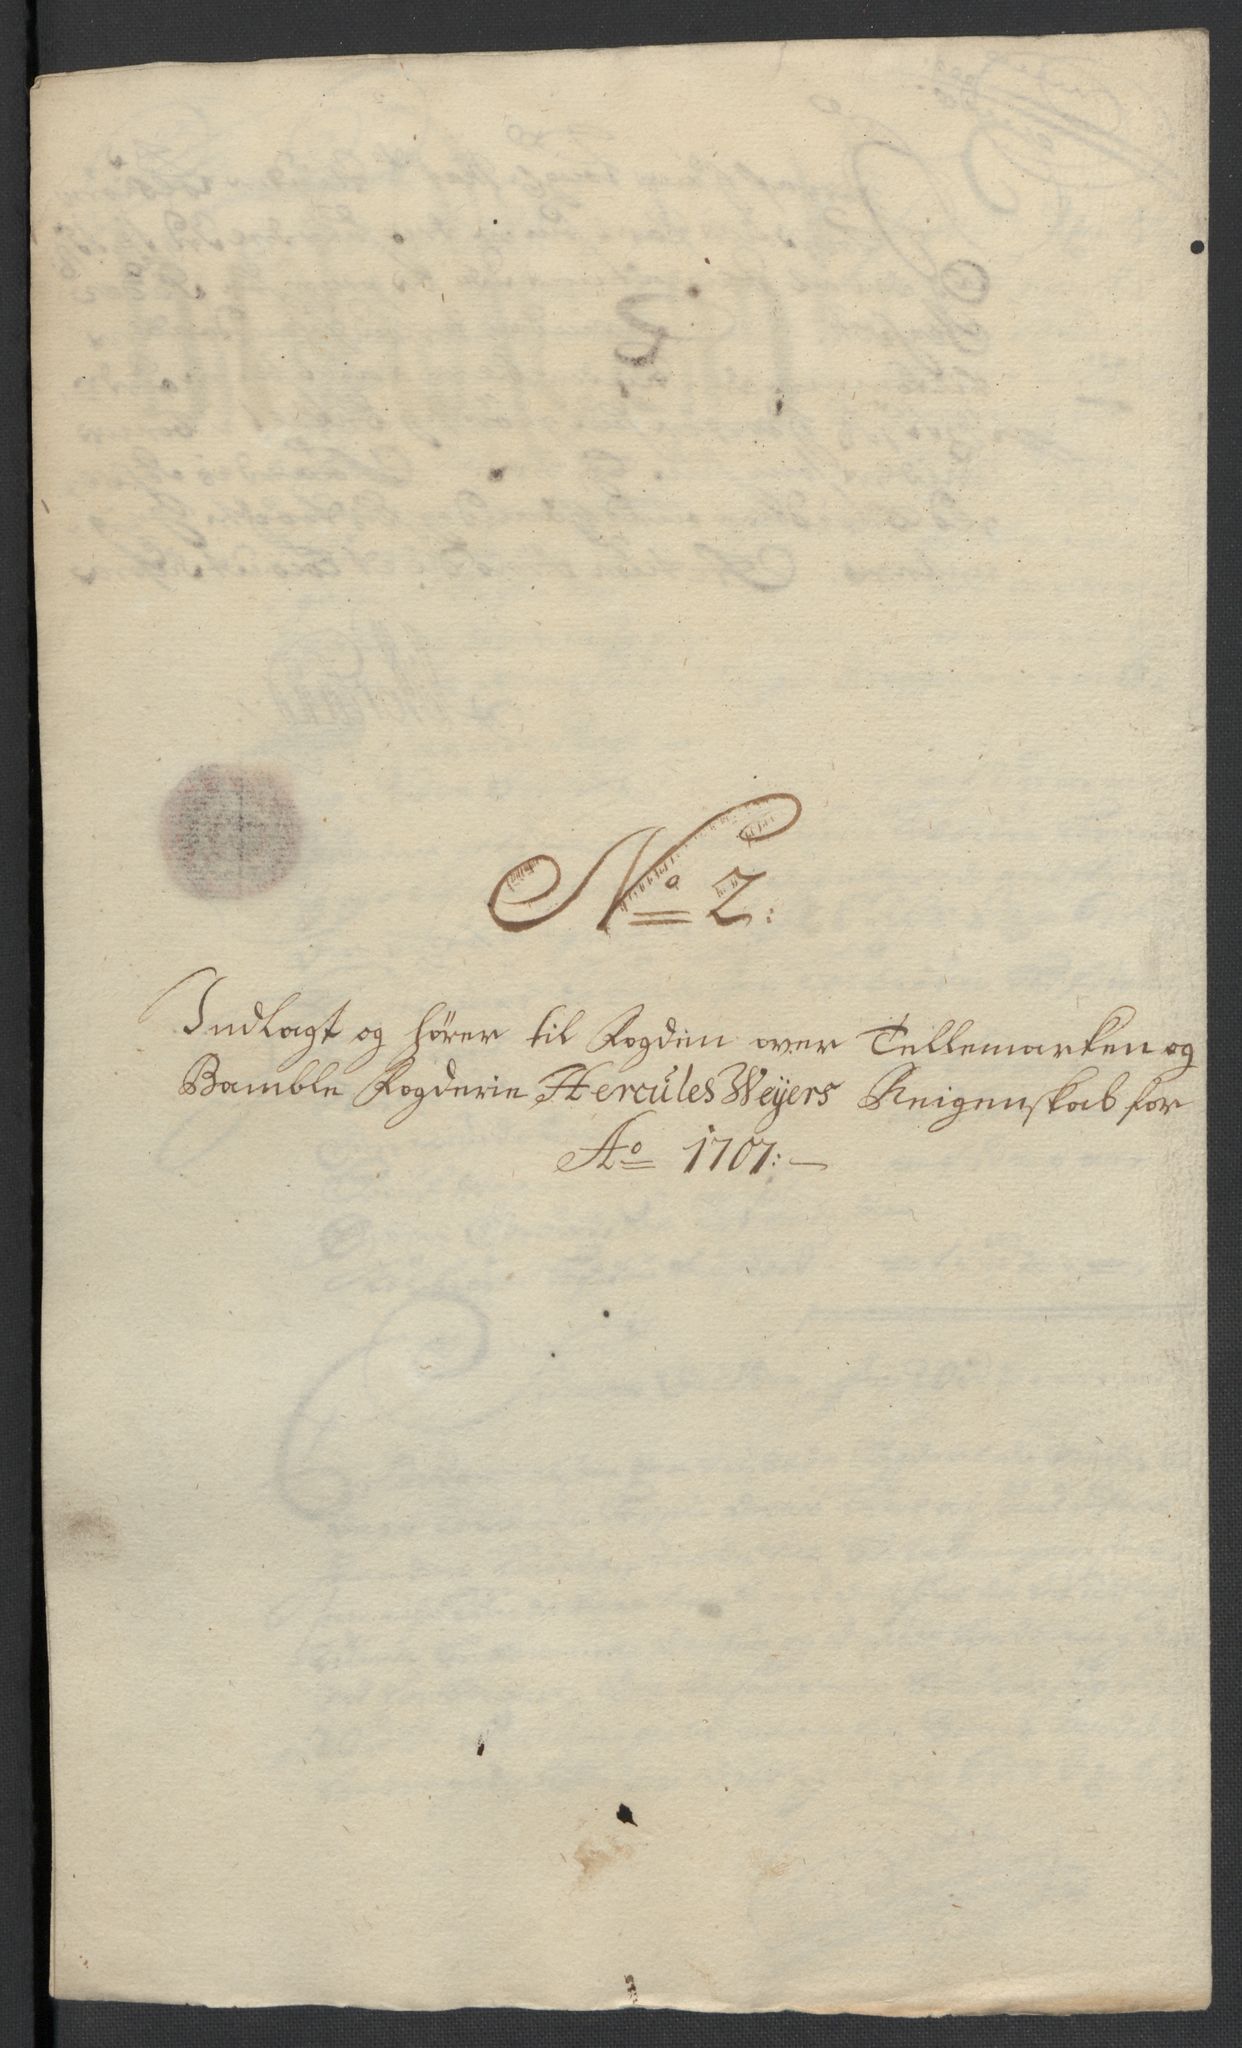 No 2:
Indlagt og hører til Fogden over Tellemarken og
Bamble Fogderie Hercules Weyers Reigenskab for
Ao 1707:—